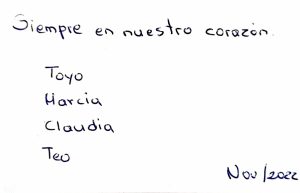 Siempre en nuestro corazón.
Toyo
Marcia
Claudia
Teo
Nov/2022